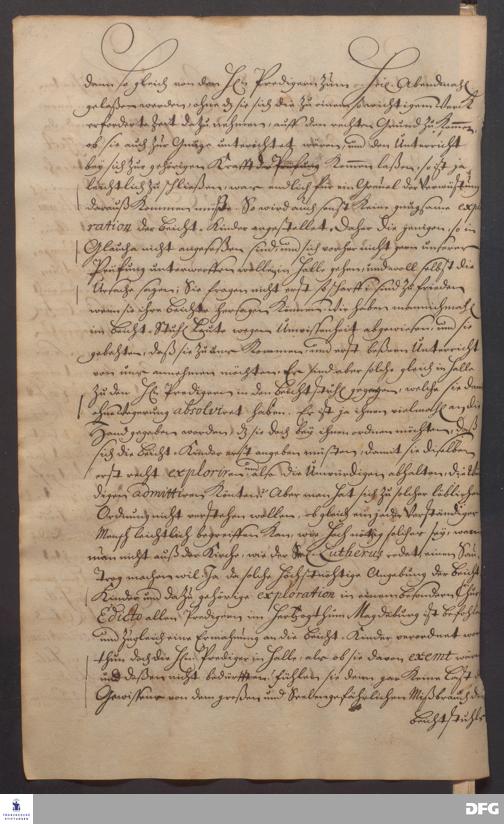 dann so gleich von den H&en Predigern zum Heil. Abendmahl
gelaßen werden, ohne dz sie sich die zu einem so wichtigen Werck
erforderte Zeit dazu nehmen, auff den rechten Grund zu kommen,
ob sie auch zur Gnüge unterrichtet wären, und den Unterricht
bey sich zur gehörigen Krafft kommen laßen, so ist ja
leichtlich zu schließen, was endlich für ein Greuel der Verwüstung
darauß kommen müste. So wird auch sonst keine gnugsame explo
ration der Beicht-Kinder angestellet. Daher die jenigen, so in
Glaucha nicht angeseßen sind, und sich vorher nicht gern unserer
Prüfung unterwerffen wollen, in Halle gehen, und wol selbst die
Ursache sagen: Sie fragen nicht erst so scharff, sind zu frieden
wenn sie ihre Beichte hersagen können. Wir haben mannichmahl
im Beicht-Stuhl Leute wegen Unwissenheit abgewiesen, und sie
gebethen, daß sie zu uns kommen und erst beßern Unterricht
von uns annehmen möchten. Es sind aber solche gleich in Halle
zu den Predigern in den Beichtstuhl gegangen, welche sie denn
ohne wegerung absolviret haben. Es ist ja ihnen vielmahl an die
Hand gegeben worden, dz sie doch bey ihnen ordnen möchten, daß
sich die Beicht-Kinder erst angeben müsten, damit sie dieselben
erst recht exploriren, also die Unwürdigen abhalten, die
digen admittiren könten: Aber man hat sich zu solcher löblichen
Ordnung nicht verstehen wollen, ob gleich ein jeder Verständiger
Mensch leichtlich begreiffen kan, wie hoch nöthig solches sey, wenn
man nicht auß der Kirche, wie der Lutherus redet, einen Säu-
Trog machen wil. Ja da solche höchstnöthige Angebung der Beicht
Kinder und dazu gehörige exploration in einem besondern Chur
Edicto allen Predigern im Hertzogthum Magdeburg ist befohlen
und zugleich eine Ermahnung an die Beicht-Kinder verordnet worden
thun doch die Prediger in Halle, als ob sie davon exemt wären
und deßen nicht bedürfften, fühlen sie denn gar keine Last des
Gewissens von dem großen und Seelengefährlichen Mißbrauch des
beicht stuhls
FRANCKESCHE
STIFTUNGEN
DFG